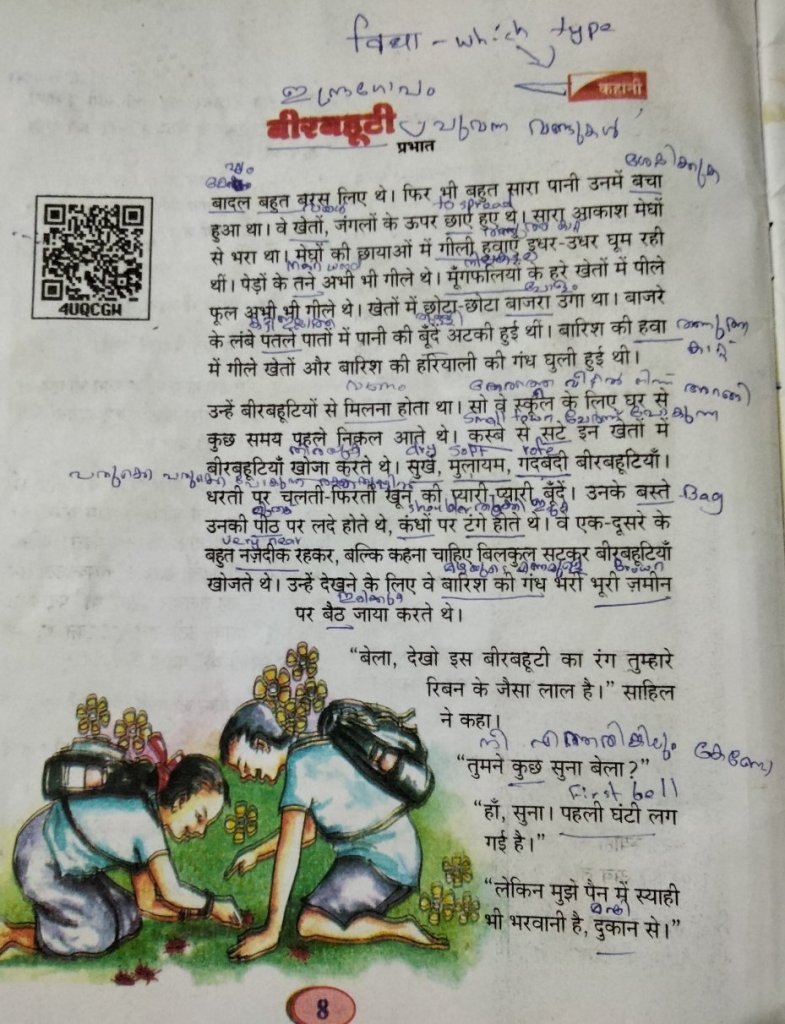 विधा - which type
കഹാനി
कहानी
ഇന്ദ്രഗോപം
बीरबहूटी
ചുവന്ന വണ്ടുകൾ
प्रभात
बादल बहुत बरस लिए थे। फिर भी बहुत सारा पानी उनमें बचा
to spread
हुआ था। वे खेतों, जंगलों के ऊपर छाए हुए थे। सारा आकाश मेघों
से भरा था। मेघों की छायाओं में गीली हवाएँ इधर-उधर घूम रही
थीं। पेड़ों के तने अभी भी गीले थे। मूँगफलियों के हरे खेतों में पीले
4UQCGW
फूल अभी भी गीले थे। खेतों में छोटा-छोटा बाजरा उगा था। बाजरे
के लंबे पतले पातों में पानी की बूँदें अटकी हुई थीं। बारिश की हवा
में गीले खेतों और बारिश की हरियाली की गंध घुली हुई थी।
उन्हें बीरबहूटियों से मिलना होता था। सो वे स्कूल के लिए घर से
small town
कुछ समय पहले निकल आते थे। कस्बे से सटे इन खेतों में
dry soft
बीरबहूटियाँ खोजा करते थे। सुर्ख, मुलायम, गदबदी बीरबहूटियाँ।
धरती पर चलती-फिरती खून की प्यारी-प्यारी बूँदें। उनके बस्ते Bag
shoulder
उनकी पीठ पर लदे होते थे, कंधों पर टंगे होते थे। वे एक-दूसरे के
very near
बहुत नज़दीक रहकर, बल्कि कहना चाहिए बिलकुल सटकर बीरबहूटियाँ
brown
खोजते थे। उन्हें देखने के लिए वे बारिश की गंध भरी भूरी ज़मीन
पर बैठ जाया करते थे।
“बेला, देखो इस बीरबहूटी का रंग तुम्हारे
रिबन के जैसा लाल है।” साहिल
ने कहा।
നീ എന്തെങ്കിലും കേട്ടോ
“तुमने कुछ सुना बेला?”
First bell
“हाँ, सुना। पहली घंटी लग
गई है।”
“लेकिन मुझे पैन में स्याही
भी भरवानी है, दुकान से।”
8